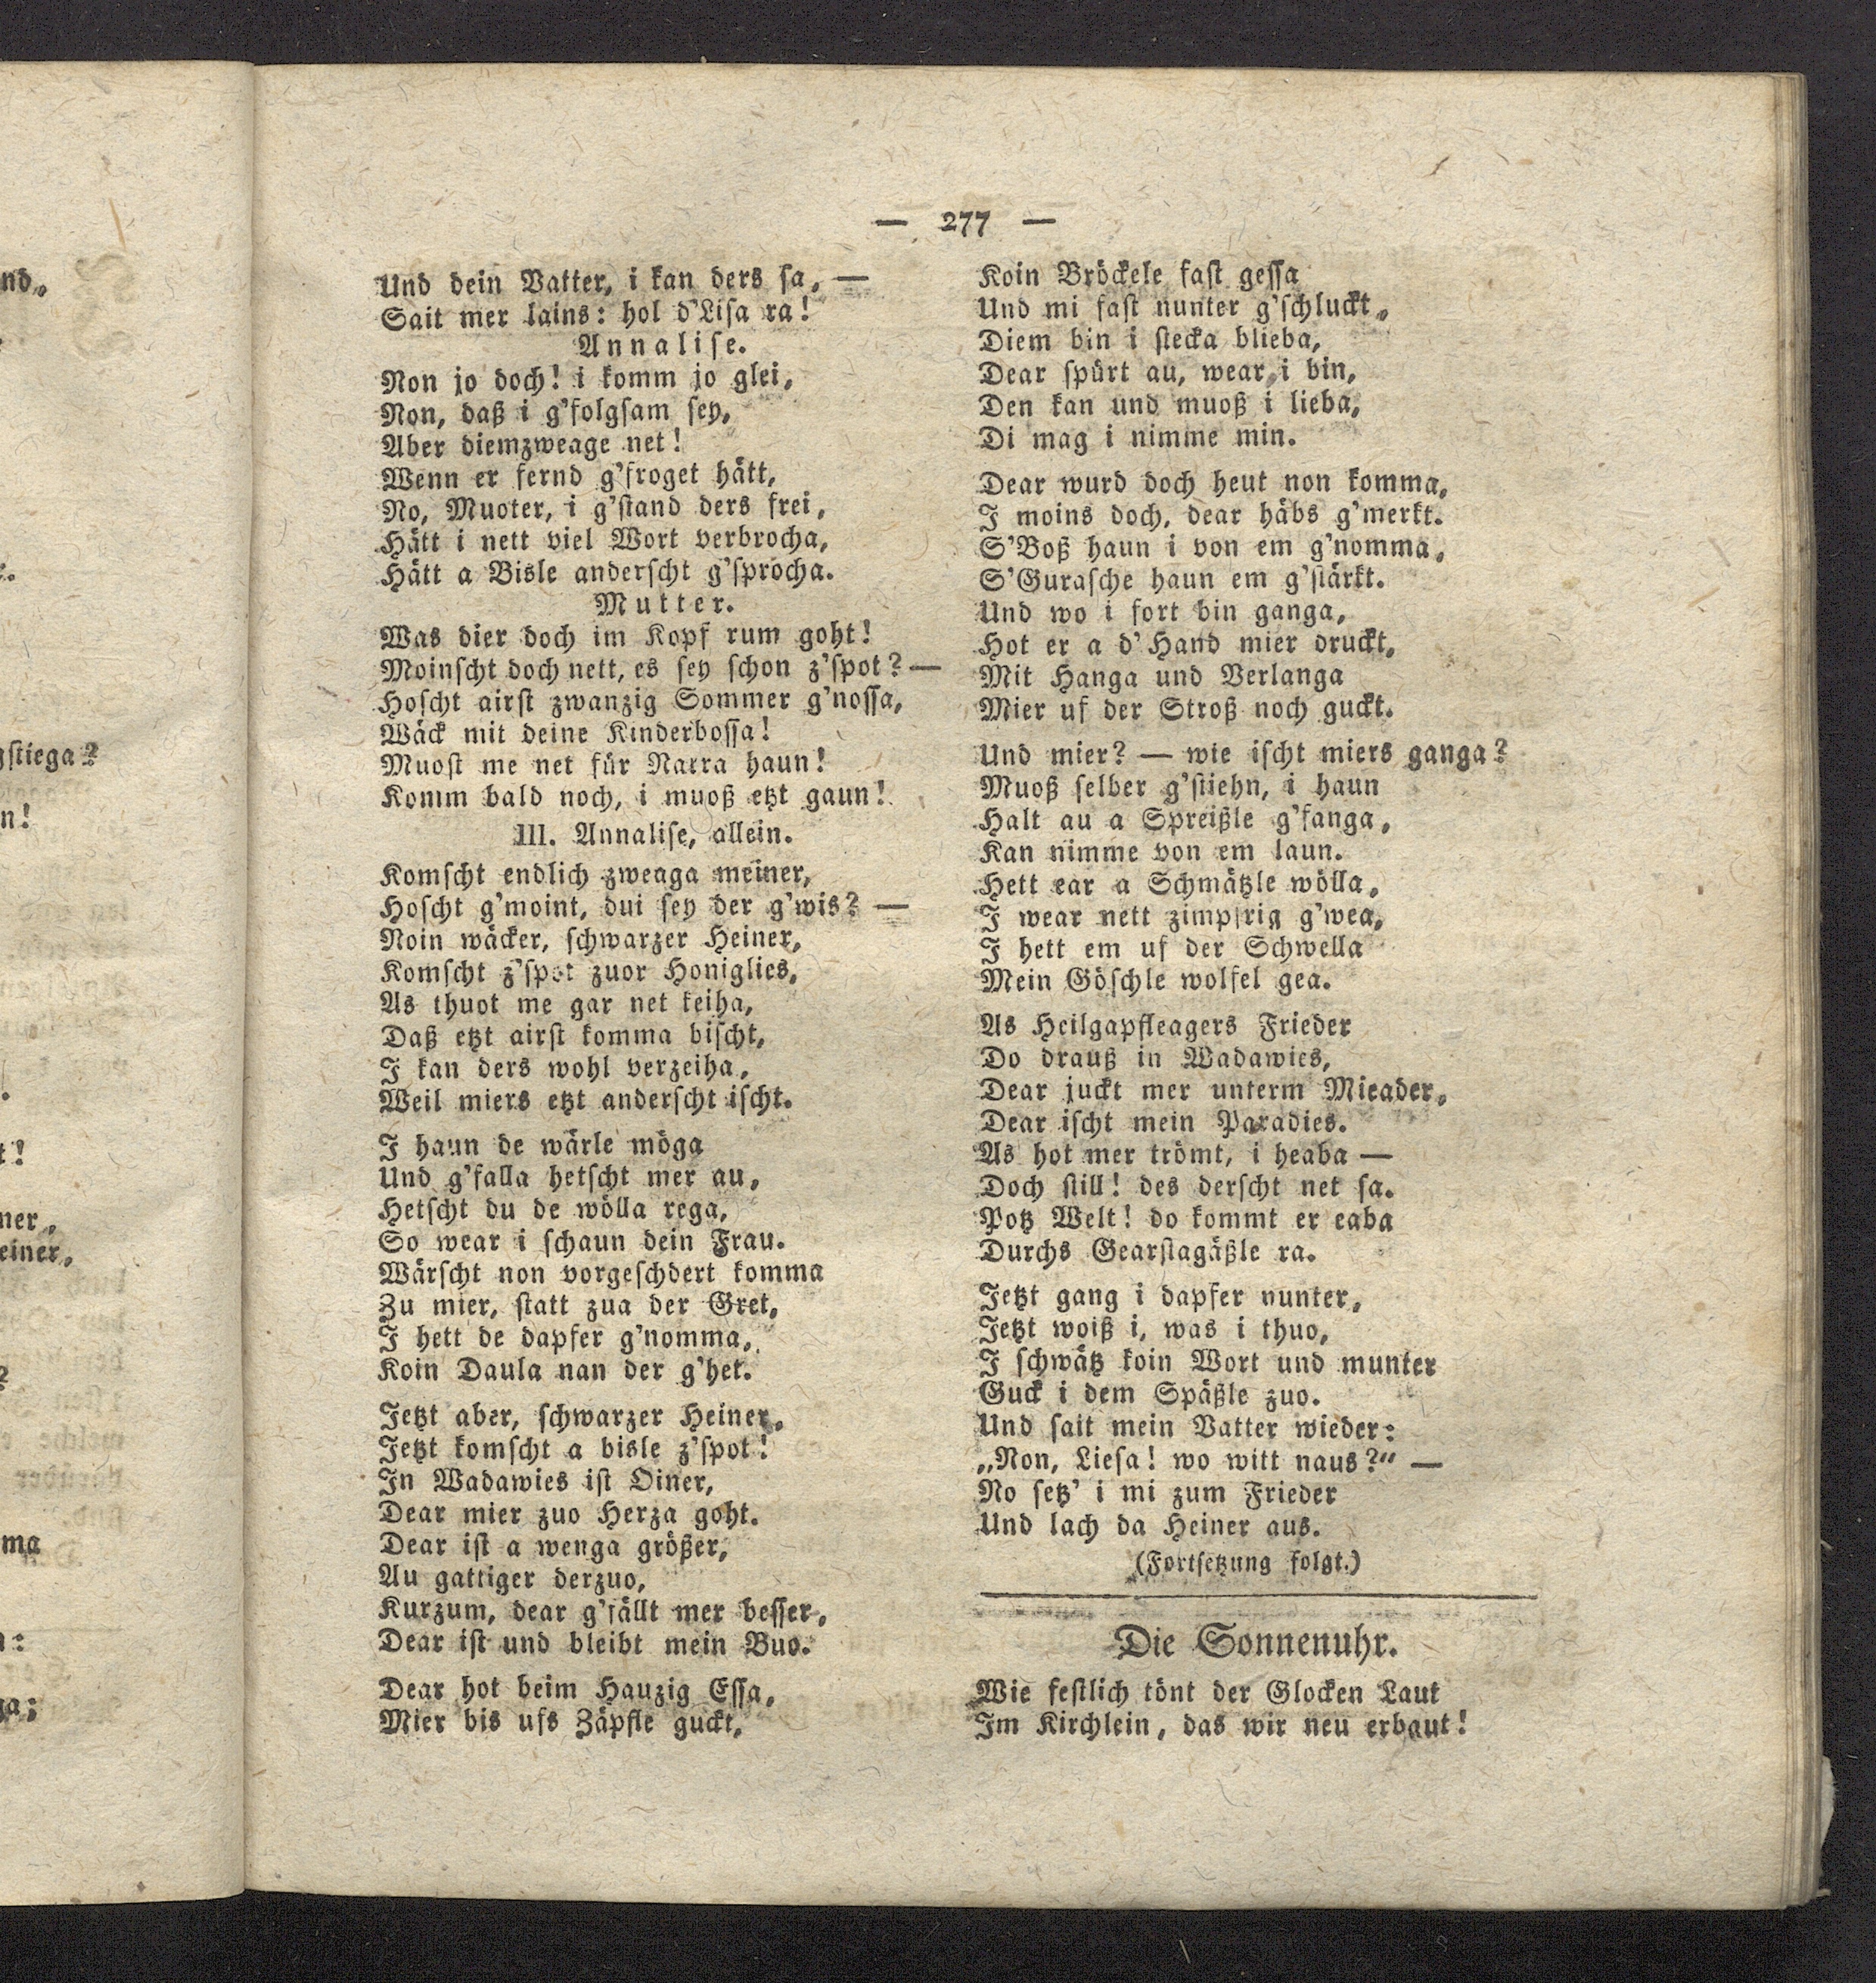 — 277 —
Und dein Vatter, i kan ders sa, —
Sait mer lains: hol d'Lisa ra!
Annalise.
Non jo doch! i komm jo glei,
Non, daß i g'folgsam sey,
Aber diemzweage net!
Wenn er fernd g'froget hätt,
No, Muoter, i g'stand ders frei,
Hätt i nett viel Wort verbrocha,
Hätt a Bisle anderscht g'sprocha.
Mutter.
Was dier doch im Kopf rum goht!
Moinscht doch nett, es sey schon z'spot? —
Hoscht airst zwanzig Sommer g'nossa,
Wäck mit deine Kinderbossa!
Muost me net für Narra haun!
Komm bald noch, i muoß etzt gaun!
III. Annalise, allein.
Komscht endlich zweaga meiner,
Hoscht g'moint, dui sey der g'wis? —
Noin wäcker, schwarzer Heiner,
Komscht z'spot zuor Honiglies,
As thuot me gar net keiha,
Daß etzt airst komma bischt,
I kan ders wohl verzeiha,
Weil miers etzt anderscht ischt.
I haun de wärle möga
Und g'falla hetscht mer au,
Hetscht du de wölla rega,
So wear i schaun dein Frau.
Wärscht non vorgeschdert komma
Zu mier, statt zua der Gret,
I hett de dapfer g'nomma,
Koin Daula nan der g'het.
Jetzt aber, schwarzer Heiner,
Jetzt komscht a bisle z'spot!
In Wadawies ist Oiner,
Dear mier zuo Herza goht.
Dear ist a wenga größer,
Au gattiger derzuo,
Kurzum, dear g'fällt mer besser,
Dear ist und bleibt mein Buo.
Dear hot beim Hauzig Essa,
Mier bis ufs Zäpfle guckt,
Koin Bröckele fast gessa
Und mi fast nunter g'schluckt,
Diem bin i stecka blieba,
Dear spürt au, wear i bin,
Den kan und muoß i lieba,
Di mag i nimme min.
Dear wurd doch heut non komma,
I moins doch, dear häbs g'merkt.
S'Boß haun i von em g'nomma,
S'Gurasche haun em g'stärkt.
Und wo i fort bin ganga,
Hot er a d' Hand mier druckt,
Mit Hanga und Verlanga
Mier uf der Stroß noch guckt.
Und mier? — wie ischt miers ganga?
Muoß selber g'stiehn, i haun
Halt au a Spreißle g'fanga,
Kan nimme von em laun.
Hett ear a Schmätzle wölla,
I wear nett zimpfrig g'wea,
I hett em uf der Schwella
Mein Göschle wolfel gea.
As Heilgapfleagers Frieder
Do drauß in Wadawies,
Dear juckt mer unterm Mieader,
Dear ischt mein Paradies.
As hot mer trömt, i heaba —
Doch still! des derscht net sa.
Potz Welt! do kommt er eaba
Durchs Gearstagäßle ra.
Jetzt gang i dapfer nunter,
Jetzt woiß i, was i thuo,
I schwätz koin Wort und munter
Guck i dem Späßle zuo.
Und sait mein Vatter wieder:
„Non, Liesa! wo witt naus?“ —
No setz' i mi zum Frieder
Und lach da Heiner aus.
(Fortsetzung folgt.)
Die Sonnenuhr.
Wie festlich tönt der Glocken Laut
Im Kirchlein, das wir neu erbaut!